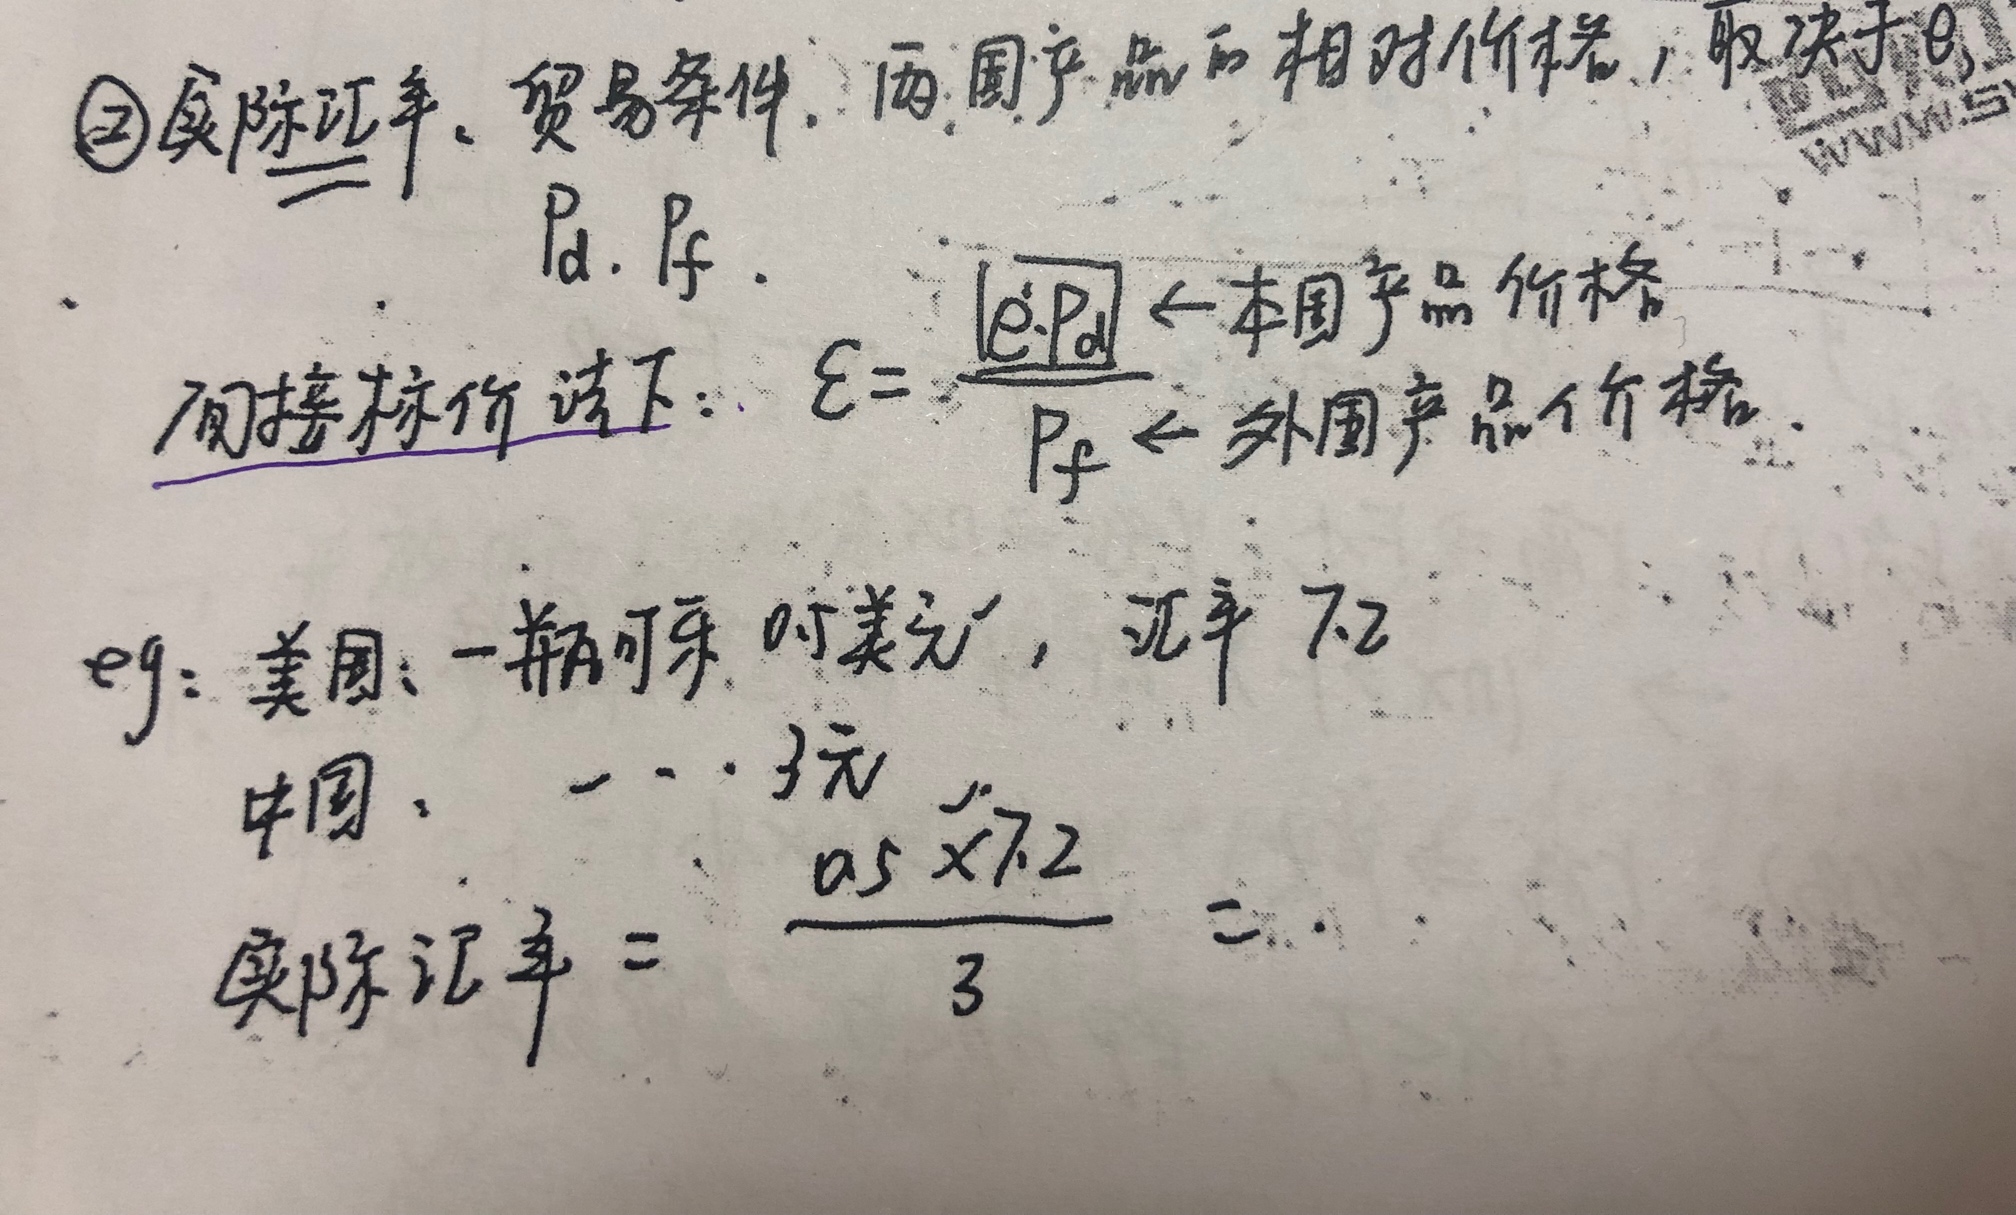 ②实际汇率、贸易条件.两国产品的相对价格,取决于e,
Pd. Pf.
间接标价法下: ε= e·Pd / Pf
←本国产品价格
←外国产品价格.
eg: 美国: 一瓶可乐 0.5美元, 汇率 7.2
中国: - - · 3元
实际汇率 = 0.5×7.2 / 3 = .
WWW.S